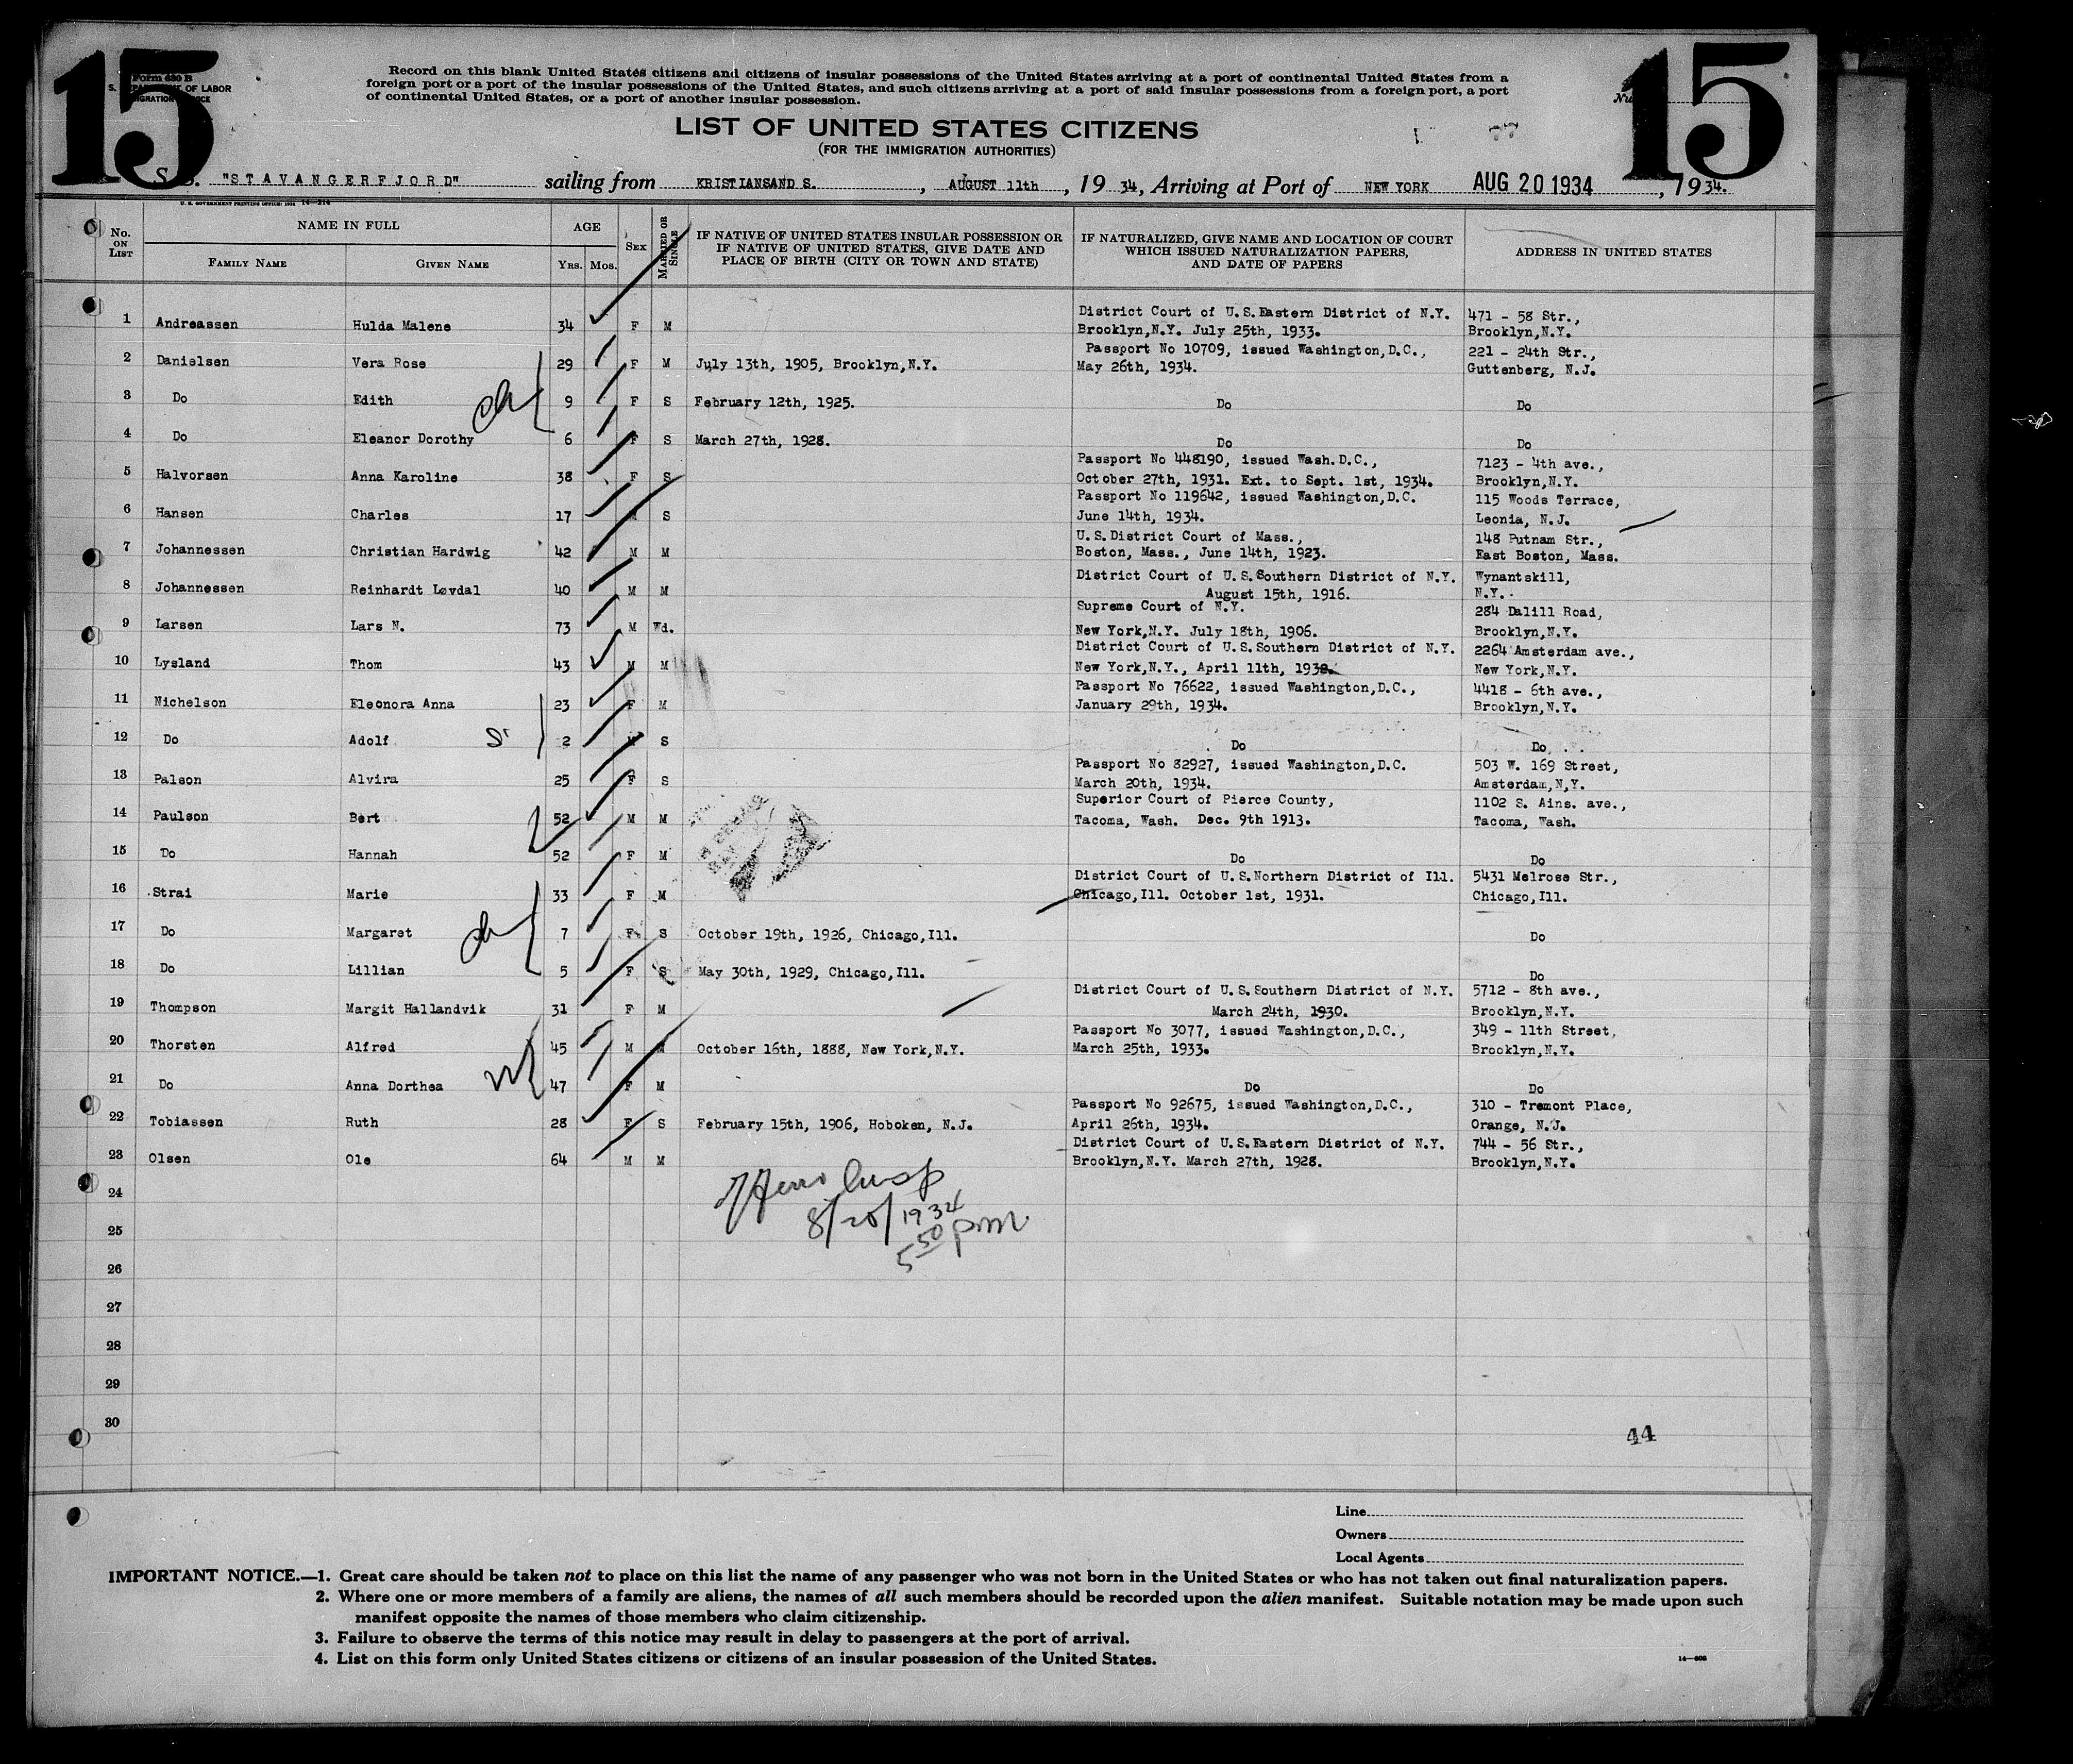 15
15
Form 630 B
Record on this blank United States citizens and citizens of insular possessions of the United States arriving at a port of continental United States from a
foreign port or a port of the insular possessions of the United States, and such citizens arriving at a port of said insular possessions from a foreign port, a port
of continental United States, or a port of another insular possession.
LIST OF UNITED STATES CITIZENS
(FOR THE IMMIGRATION AUTHORITIES)
S. S. "STAVANGERFJORD" sailing from KRISTIANSAND S. , AUGUST 11th , 19 34, Arriving at Port of NEW YORK AUG 20 1934 , 1934.
No. ON LIST NAME IN FULL AGE SEX MARRIED OR SINGLE IF NATIVE OF UNITED STATES INSULAR POSSESSION OR IF NATIVE OF UNITED STATES, GIVE DATE AND PLACE OF BIRTH (CITY OR TOWN AND STATE) IF NATURALIZED, GIVE NAME AND LOCATION OF COURT WHICH ISSUED NATURALIZATION PAPERS, AND DATE OF PAPERS ADDRESS IN UNITED STATES
FAMILY NAME GIVEN NAME YRS. MOS.
District Court of U.S.Eastern District of N.Y. 471 - 58 Str.,
1 Andreassen Hulda Malene 34 F M Brooklyn,N.Y. July 25th, 1933. Brooklyn,N.Y.
Passport No 10709, issued Washington,D.C., 221 - 24th Str.,
2 Danielsen Vera Rose 29 F M July 13th, 1905, Brooklyn,N.Y. May 26th, 1934. Guttenberg, N.J.
3 Do Edith 9 F S February 12th, 1925. Do Do
4 Do Eleanor Dorothy 6 F S March 27th, 1928. Do Do
Passport No 448190, issued Wash.D.C., 7123 - 4th ave.,
5 Halvorsen Anna Karoline 38 F S October 27th, 1931. Ext. to Sept. 1st, 1934. Brooklyn,N.Y.
Passport No 119642, issued Washington,D.C. 115 Woods Terrace,
6 Hansen Charles 17 S June 14th, 1934. Leonia, N.J.
U.S.District Court of Mass., 148 Putnam Str.,
7 Johannessen Christian Hardwig 42 M M Boston, Mass., June 14th, 1923. East Boston, Mass.
District Court of U.S.Southern District of N.Y. Wynantskill,
8 Johannessen Reinhardt Løvdal 40 M M August 15th, 1916. N.Y.
Supreme Court of N.Y. 284 Dalill Road,
9 Larsen Lars N. 73 M Wd. New York,N.Y. July 18th, 1906. Brooklyn,N.Y.
District Court of U.S.Southern District of N.Y. 2264 Amsterdam ave.,
10 Lysland Thom 43 M M New York,N.Y., April 11th, 1932. New York,N.Y.
Passport No 76622, issued Washington,D.C., 4418 - 6th ave.,
11 Nichelson Eleonora Anna 23 F M January 29th, 1934. Brooklyn,N.Y.
12 Do Adolf 2 M S Do Do
Passport No 82927, issued Washington,D.C. 503 W. 169 Street,
13 Palson Alvira 25 F S March 20th, 1934. Amsterdam,N,Y.
Superior Court of Pierce County, 1102 S. Ains. ave.,
14 Paulson Bert 52 M M Tacoma, Wash. Dec. 9th 1913. Tacoma, Wash.
15 Do Hannah 52 F M Do Do
District Court of U.S.Northern District of Ill. 5431 Melrose Str.,
16 Strai Marie 33 F M Chicago,Ill. October 1st, 1931. Chicago,Ill.
17 Do Margaret 7 F S October 19th, 1926, Chicago,Ill. Do
18 Do Lillian 5 F S May 30th, 1929, Chicago,Ill. Do
District Court of U.S.Southern District of N.Y. 5712 - 8th ave.,
19 Thompson Margit Hallandvik 31 F M March 24th, 1930. Brooklyn,N.Y.
Passport No 3077, issued Washington,D.C., 349 - 11th Street,
20 Thorsten Alfred 45 M M October 16th, 1888, New York,N.Y. March 25th, 1933. Brooklyn,N.Y.
21 Do Anna Dorthea 47 F M Do Do
Passport No 92675, issued Washington,D.C., 310 - Tremont Place,
22 Tobiassen Ruth 28 F S February 15th, 1906, Hoboken, N.J. April 26th, 1934. Orange, N.J.
District Court of U.S.Eastern District of N.Y. 744 - 56 Str.,
23 Olsen Ole 64 M M Brooklyn,N.Y. March 27th, 1928. Brooklyn,N.Y.
24
8/20/1934
25
5 50 pm
26
27
28
29
30
44
Line
Owners
Local Agents
IMPORTANT NOTICE.—1. Great care should be taken not to place on this list the name of any passenger who was not born in the United States or who has not taken out final naturalization papers.
2. Where one or more members of a family are aliens, the names of all such members should be recorded upon the alien manifest. Suitable notation may be made upon such
manifest opposite the names of those members who claim citizenship.
3. Failure to observe the terms of this notice may result in delay to passengers at the port of arrival.
4. List on this form only United States citizens or citizens of an insular possession of the United States.